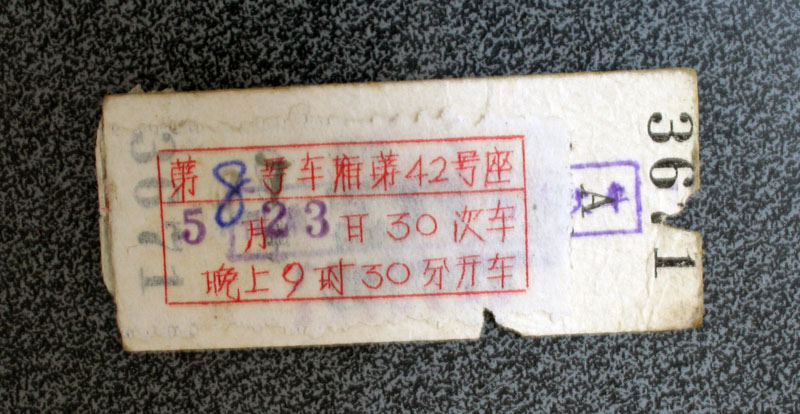 第8号车厢第42号座
5月23日30次车
晚上9时30分开车
A
3671